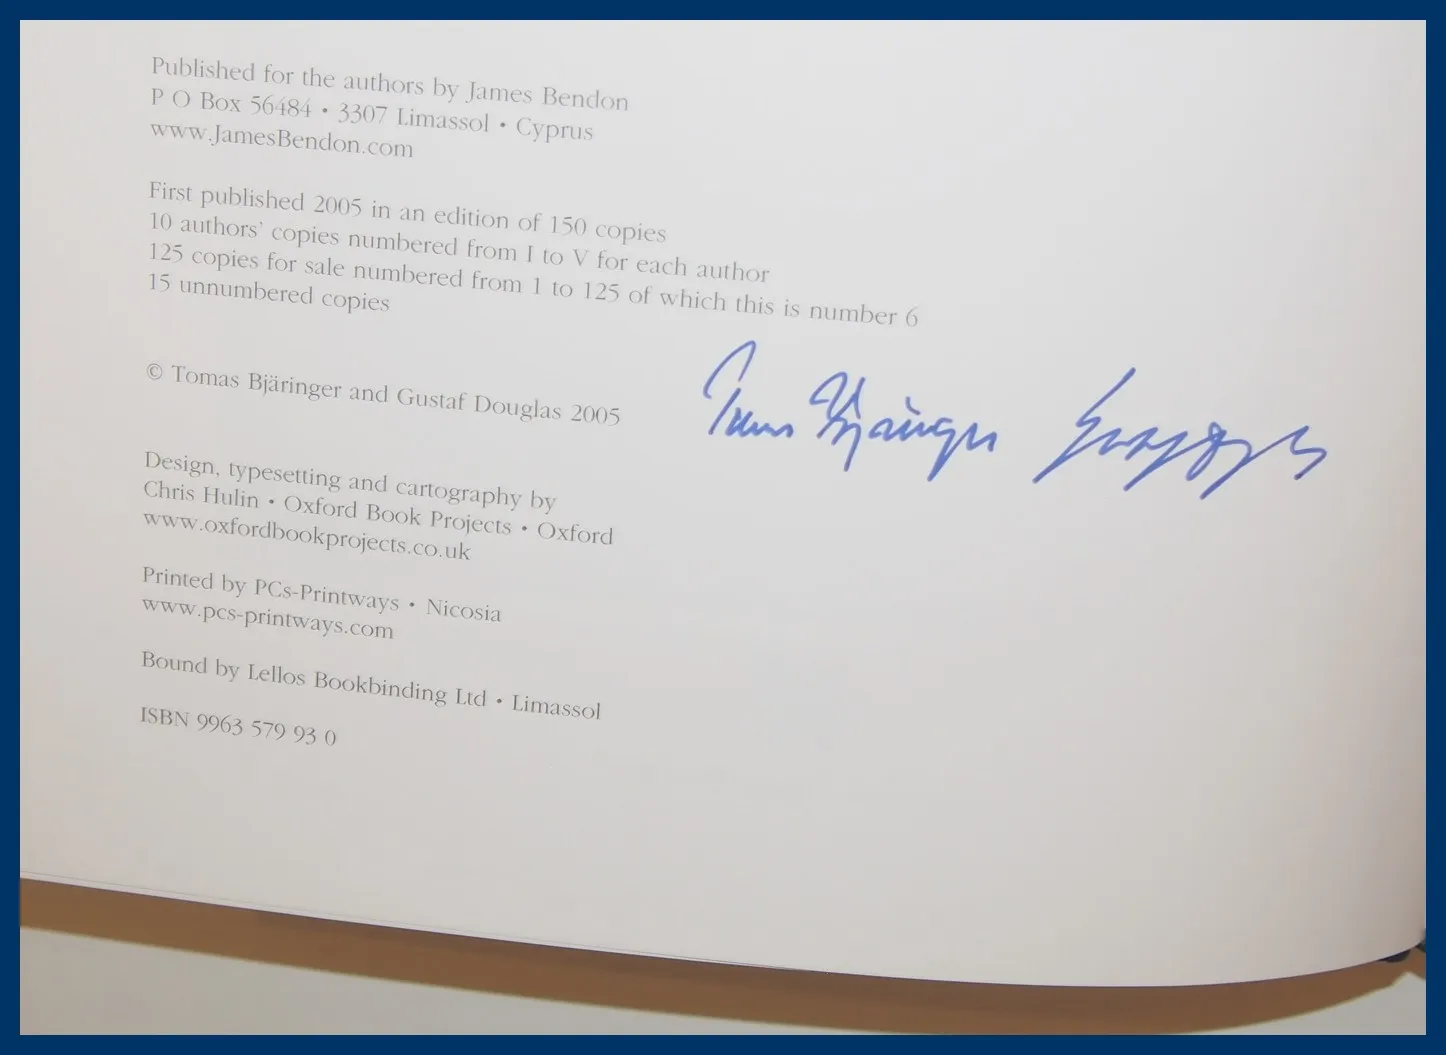 Published for the authors by James Bendon
P O Box 56484 • 3307 Limassol • Cyprus
www.JamesBendon.com
First published 2005 in an edition of 150 copies
10 authors' copies numbered from I to V for each author
125 copies for sale numbered from 1 to 125 of which this is number 6
15 unnumbered copies
© Tomas Bjäringer and Gustaf Douglas 2005
Tomas Bjäringer
Design, typesetting and cartography by
Chris Hulin • Oxford Book Projects • Oxford
www.oxfordbookprojects.co.uk
Printed by PCs-Printways • Nicosia
www.pcs-printways.com
Bound by Lellos Bookbinding Ltd • Limassol
ISBN 9963 579 93 0